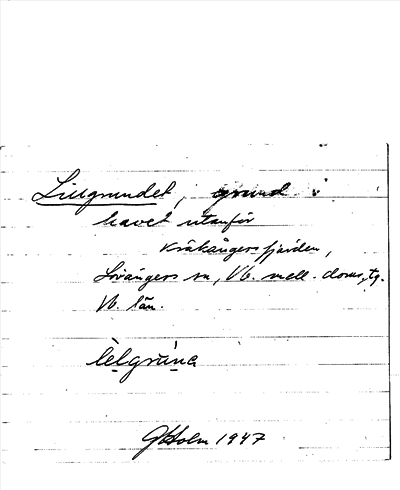 Lillgrundet, grund i
havet utanför
Kråkångersfjärden,
Lövångers sn, Vb. mell. doms.tg.
Vb. län.
lèlgrúna
GHolm 1947